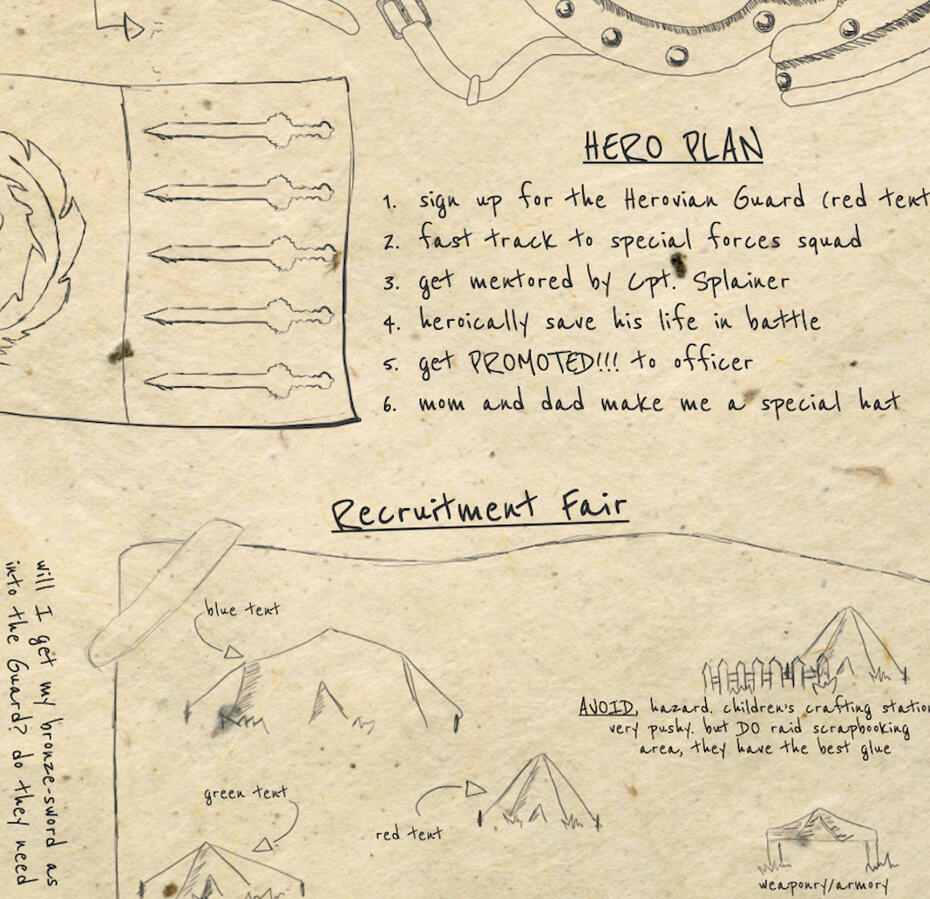 HERO PLAN
1. sign up for the Herovian Guard (red tent
2. fast track to special forces squad
3. get mentored by Cpt. Splainer
4. heroically save his life in battle
5. get PROMOTED!!! to officer
6. mom and dad make me a special hat
Recruitment Fair
will I get my bronze-sword as
into the Guard? do they need
blue tent
AVOID, hazard. children's crafting station
very pushy. but DO raid scrapbooking
area, they have the best glue
green tent
red tent
weaponry/armory